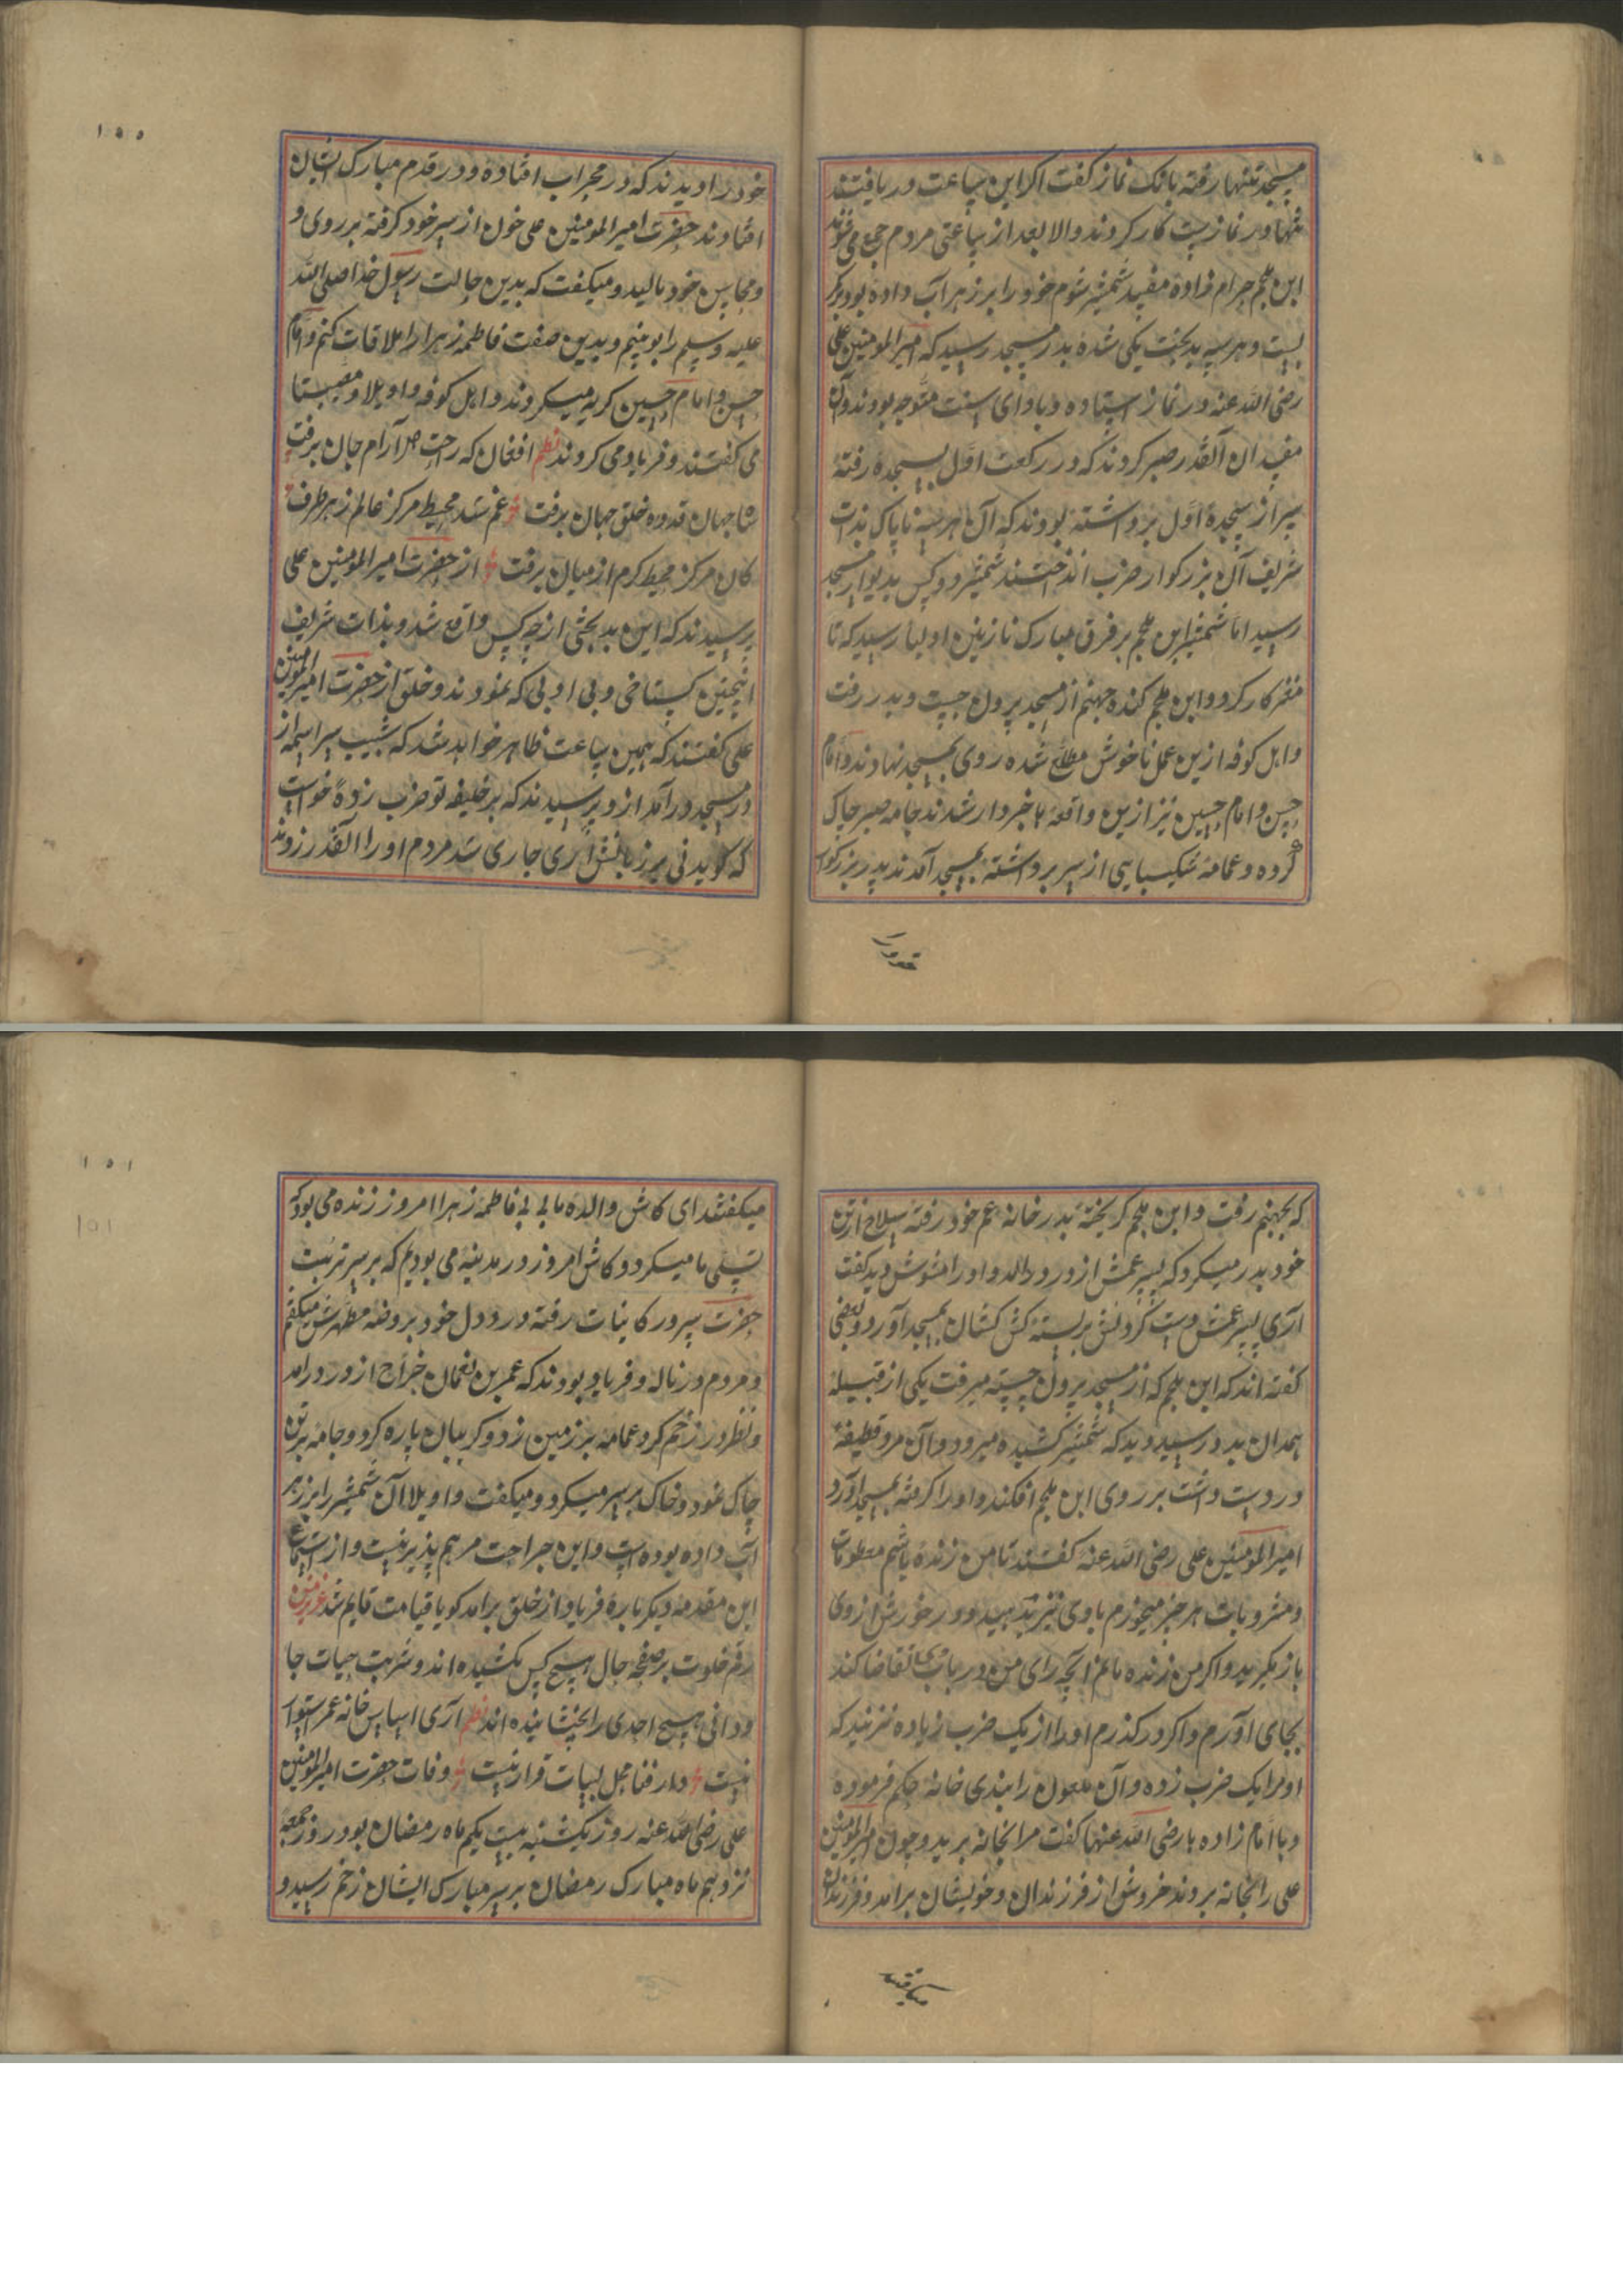 مسجد تنها رفته بانک نماز کفت اکر این ساعت دریافتند
تنها در نمازست کار کردند والا بعد از ساعتی مردم جمع می شوند
ابن ملجم حرام زاده مفسد شمشیر شوم خود را بر زهر اب داده بود بر کمر
بست و هر سه بدبخت یکی شده بدر مسجد رسید که امیرالمومنین علی
رضی الله عنه در نماز استاده و بادای سنت متوجه بودند و آن
مفسدان آنقدر صبر کردند که در رکعت اول بسجده رفته
سر از سجدهٔ اول برداشته بودند که آن هر سه ناپاک بذات
شریف آن بزرکوار ضرب انداختند شمشیر دو کس بدیوار مسجد
رسید اما شمشیر ابن ملجم بر فرق مبارک نازنین اولیا رسید که تا
مغز کار کرد و ابن ملجم کنده جهنم از مسجد برون جست و بدر رفت
و اهل کوفه ازین عمل ناخوش مطلع شده روی بمسجد نهادند و امام
حسن و امام حسین نیز ازین واقعه باخبردار شدند جامه صبر چاک
کرده و عمامه شکیبایی از سر برداشته بمسجد آمدند پدر بزرکوار
خود را دیدند که در محراب افتاده و در قدم مبارک ایشان
افتادند حضرت امیرالمومنین علی خون از سر خود کرفته بر روی و
و محاسن خود مالید و میکفت که بدین حالت رسول خدا صلی الله
علیه وسلم را بوینم و بدین صفت فاطمه زهرا را ملاقات کنم و امام
حسن و امام حسین کریه میکردند و اهل کوفه واویلا و مصیبتا
می کفتند و فریاد می کردند نظم افغان که راحت دل آرام جان برفت
شاه جهان قدوه خلق جهان برفت غم شد محیط مرکز عالم ز هر طرف
کان مرکز محیط کرم از میان برفت از حضرت امیرالمومنین علی
پرسیدند که این بدبختی از چه کس واقع شد و بذات شریف
اینچنین کستاخی و بی ادبی که نمودند و خلق از حضرت امیرالمومنین
علی کفتند که همین ساعت ظاهر خواهد شد که شبیب سراسیمه از
در مسجد درآمد ازو پرسیدند که بر خلیفه تو ضرب زدهٔ خواست
که کوید نی بر زبانش آری جاری شد مردم او را آنقدر زدند
که بجهنم رفت و ابن ملجم کریخته بدر خانه عم خود رفته سلاح از تن
خود بدر میکرد که پسر عمش از در درامد و او را مشوش دید کفت
آری پسر عمش دست و کردنش بر بسته کش کشان بمسجد آورد و بعضی
کفته اند که ابن ملجم که از مسجد برون جسته میرفت یکی از قبیله
همدان بدو رسید دید که شمشیر کشیده میرود و آن مرد قطیفهٔ
در دست داشت بر روی ابن ملجم افکند و او را کرفته بمسجد آورد
امیرالمومنین علی رضی الله عنه کفتند تا من زنده باشم مطعومات
و مشروبات هر چیز میخورم باوی نیز بدهید و در خورش از وی
باز مکیرید و اکر من زنده مانم آنچه رای من در باب تقاضا کند
بجای آورم و اکر درکذرم او را از یک ضرب زیاده نزنید که
او مرا یک ضرب زده و آن ملعون را بندی خانه حکم فرموده
و با امام زاده ها رضی الله عنهما کفت مرا بخانه برید و چون امیرالمومنین
علی را بخانه بردند خروش از فرزندان و خویشان برامد و فرزندان
میکفتند ای کاش والده ما بی بی فاطمه زهرا امروز زنده می بود که
تسلی ما میکرد و کاش امروز در مدینه می بودیم که بر سر تربت
حضرت سرور کاینات رفته درد دل خود بروضه مطهرش میکفتیم
و مردم در ناله و فریاد بودند که عمر بن نعمان جراح از در درامد
و نظر در زخم کرد عمامه بر زمین زد و کریبان پاره کرد و جامه بر تن
چاک نمود و خاک بر سر میکرد و میکفت واویلا آن شمشیر را بزهر
آب داده بوده است و این جراحت مرهم پذیر نیست و از استماع
این مقدمه دیکر باره فریاد از خلق برامد کویا قیامت قایم شد عزیز من
رقم خلوت بر صفحه حال هیچ کس نکشیده اند و شربت حیات جا
ودانی هیچ احدی را نچشانیده اند نظم آری اساس خانه عمر استوار
نیست دار فنا محل ثبات قرار نیست وفات حضرت امیرالمومنین
علی رضی الله عنه روز یکشنبه بیست یکم ماه رمضان بود روز جمعه
نزدهم ماه مبارک رمضان بر سر مبارک ایشان زخم رسید و